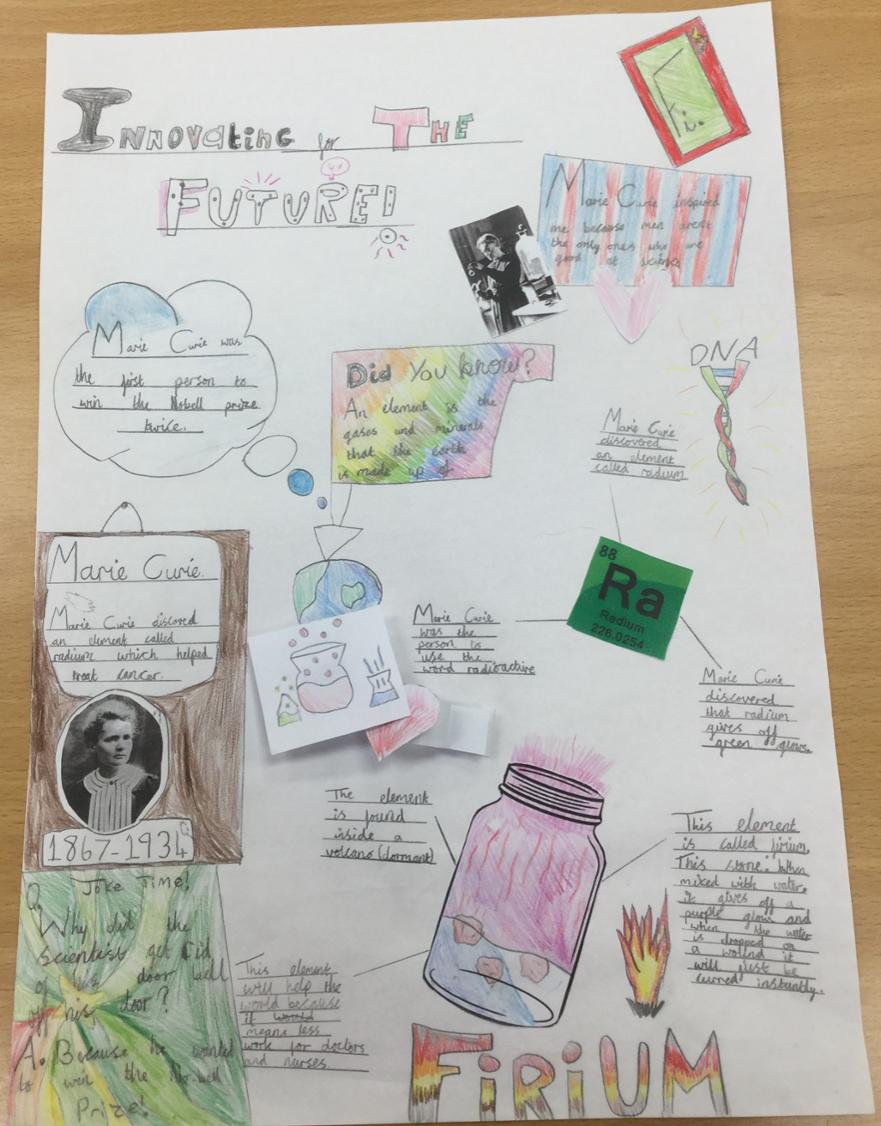 Innovating for The
Future!
Fi.
Marie Curie inspired
me because men arent
the only ones who are
good at science
Marie Curie was
the first person to
win the Nobell prize
twice.
Did You know?
An element is the
gases and minerals
that the earth
is made up of
DNA
Marie Curie
discovered
an element
called radium
88
Ra
Radium
226.0254
Marie Curie.
Marie Curie discovered
an element called
radium which helped
treat cancer.
1867-1934
Marie Curie
was the
person to
use the
word radioactive
Marie Curie
discovered
that radium
gives off
green glow.
The element
is found
inside a
volcano (dormant)
This element
is called firium.
This stone: When
mixed with water,
it gives off a
purple glow and
when the water
is dropped on
a wound it
will just be
curred instantly.
This element
will help the
world because
it would
means less
work for doctors
and nurses.
Q. Joke Time!
Why did the
scientest get rid
of his door bell
off his door?
A. Because he wanted
to win the No-bell
Prize!
FiRiUM